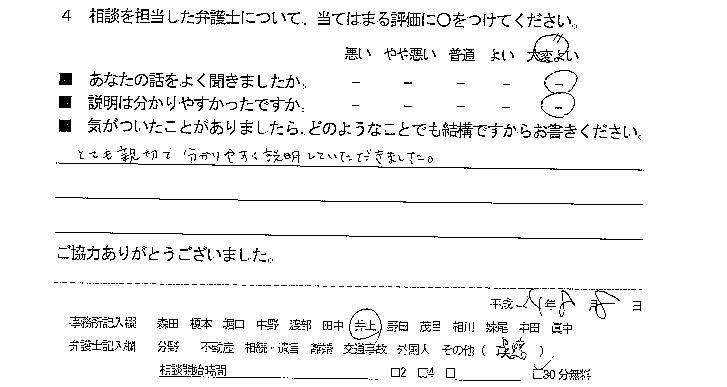 4 相談を担当した弁護士について、当てはまる評価に○をつけてください。
悪い やや悪い 普通 よい 大変よい
■ あなたの話をよく聞きましたか。 － － － － －
■ 説明は分かりやすかったですか。 － － － － －
■ 気がついたことがありましたら、どのようなことでも結構ですからお書きください。
とても親切で分かりやすく説明していただきました。
ご協力ありがとうございました。
平成 年 月 日
事務所記入欄 森田 榎本 堀口 中野 渡部 田中 井上 野田 茂里 相川 妹尾 中田 眞中
弁護士記入欄 分野 不動産 相続・遺言 離婚 交通事故 外国人 その他( )
相談開始時間 □2 □4 □ □30分無料